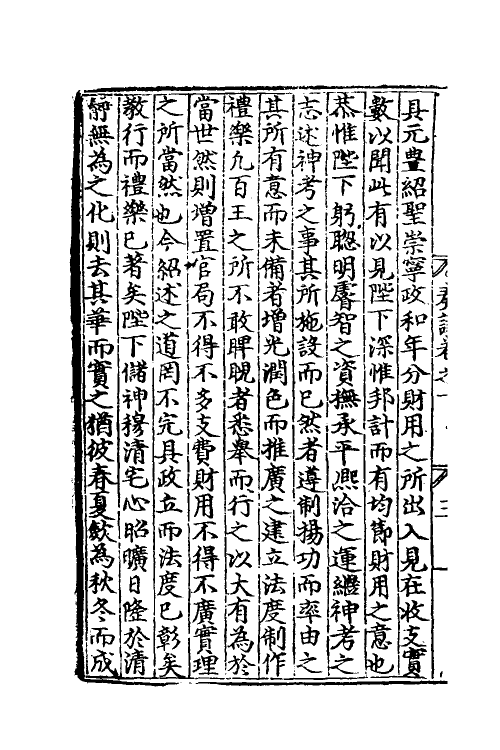 具元豐紹聖崇寧政和年分財用之所出入見在收支實
數以聞此有以見陛下深惟邦計而有均節財用之意也
恭惟陛下躬聡明睿智之資撫承平熈洽之運繼神考之
志述神考之事其所施設而已然者遵制揚功而率由之
其所有意而未備者増光潤色而推廣之建立法度制作
禮樂九百王之所不敢睥睨者悉舉而行之以大有為於
當世然則増置官局不得不多支費財用不得不廣實理
之所當然也今紹述之道罔不完具政立而法度已彰矣
敎行而禮樂已著矣陛下儲神穆清宅心昭曠日隆於清
靜無為之化則去其華而實之猶彼春夏歛為秋冬而成